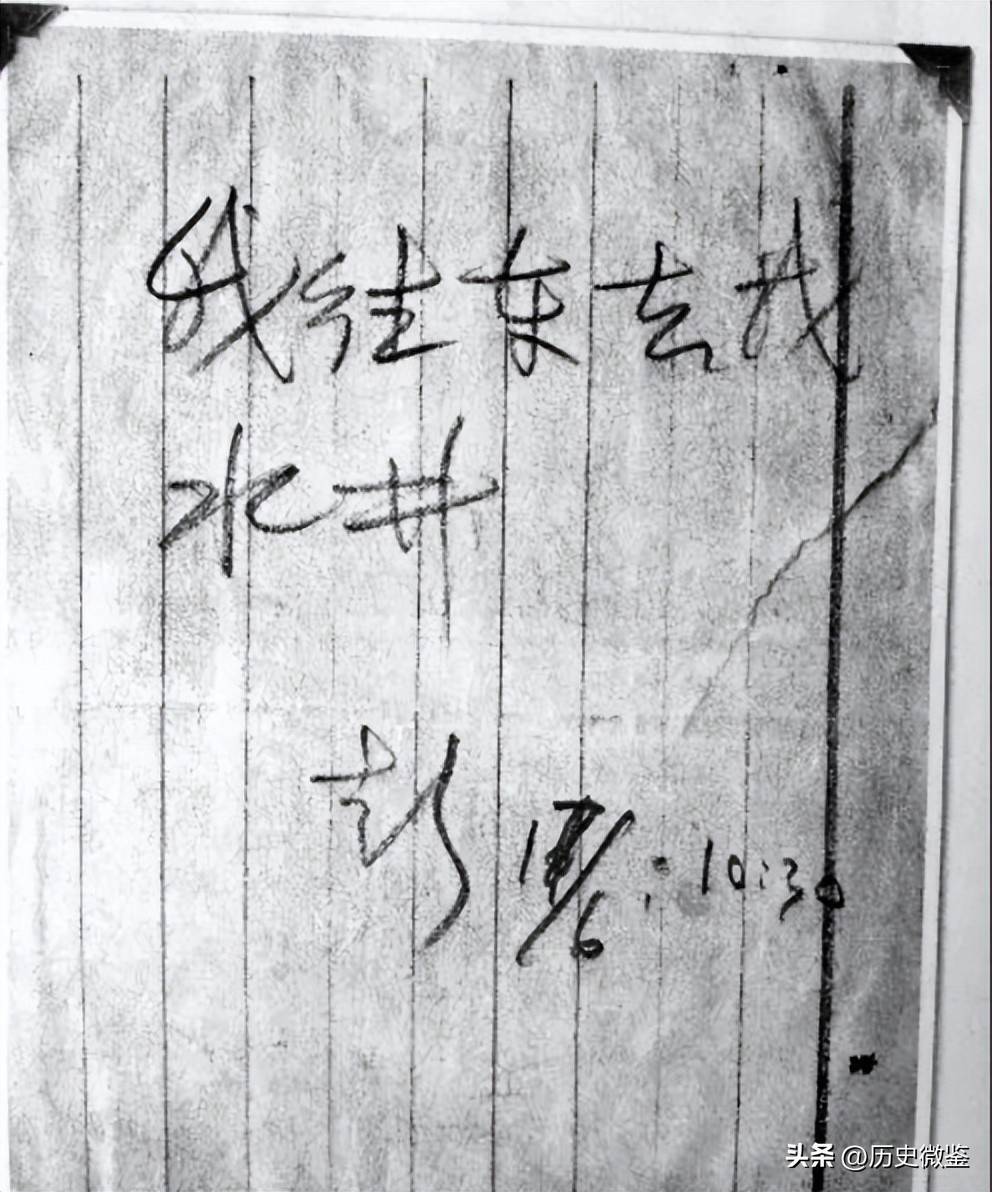 我往东去找
水井
彭 17/6:10:30
头条 @历史微鉴